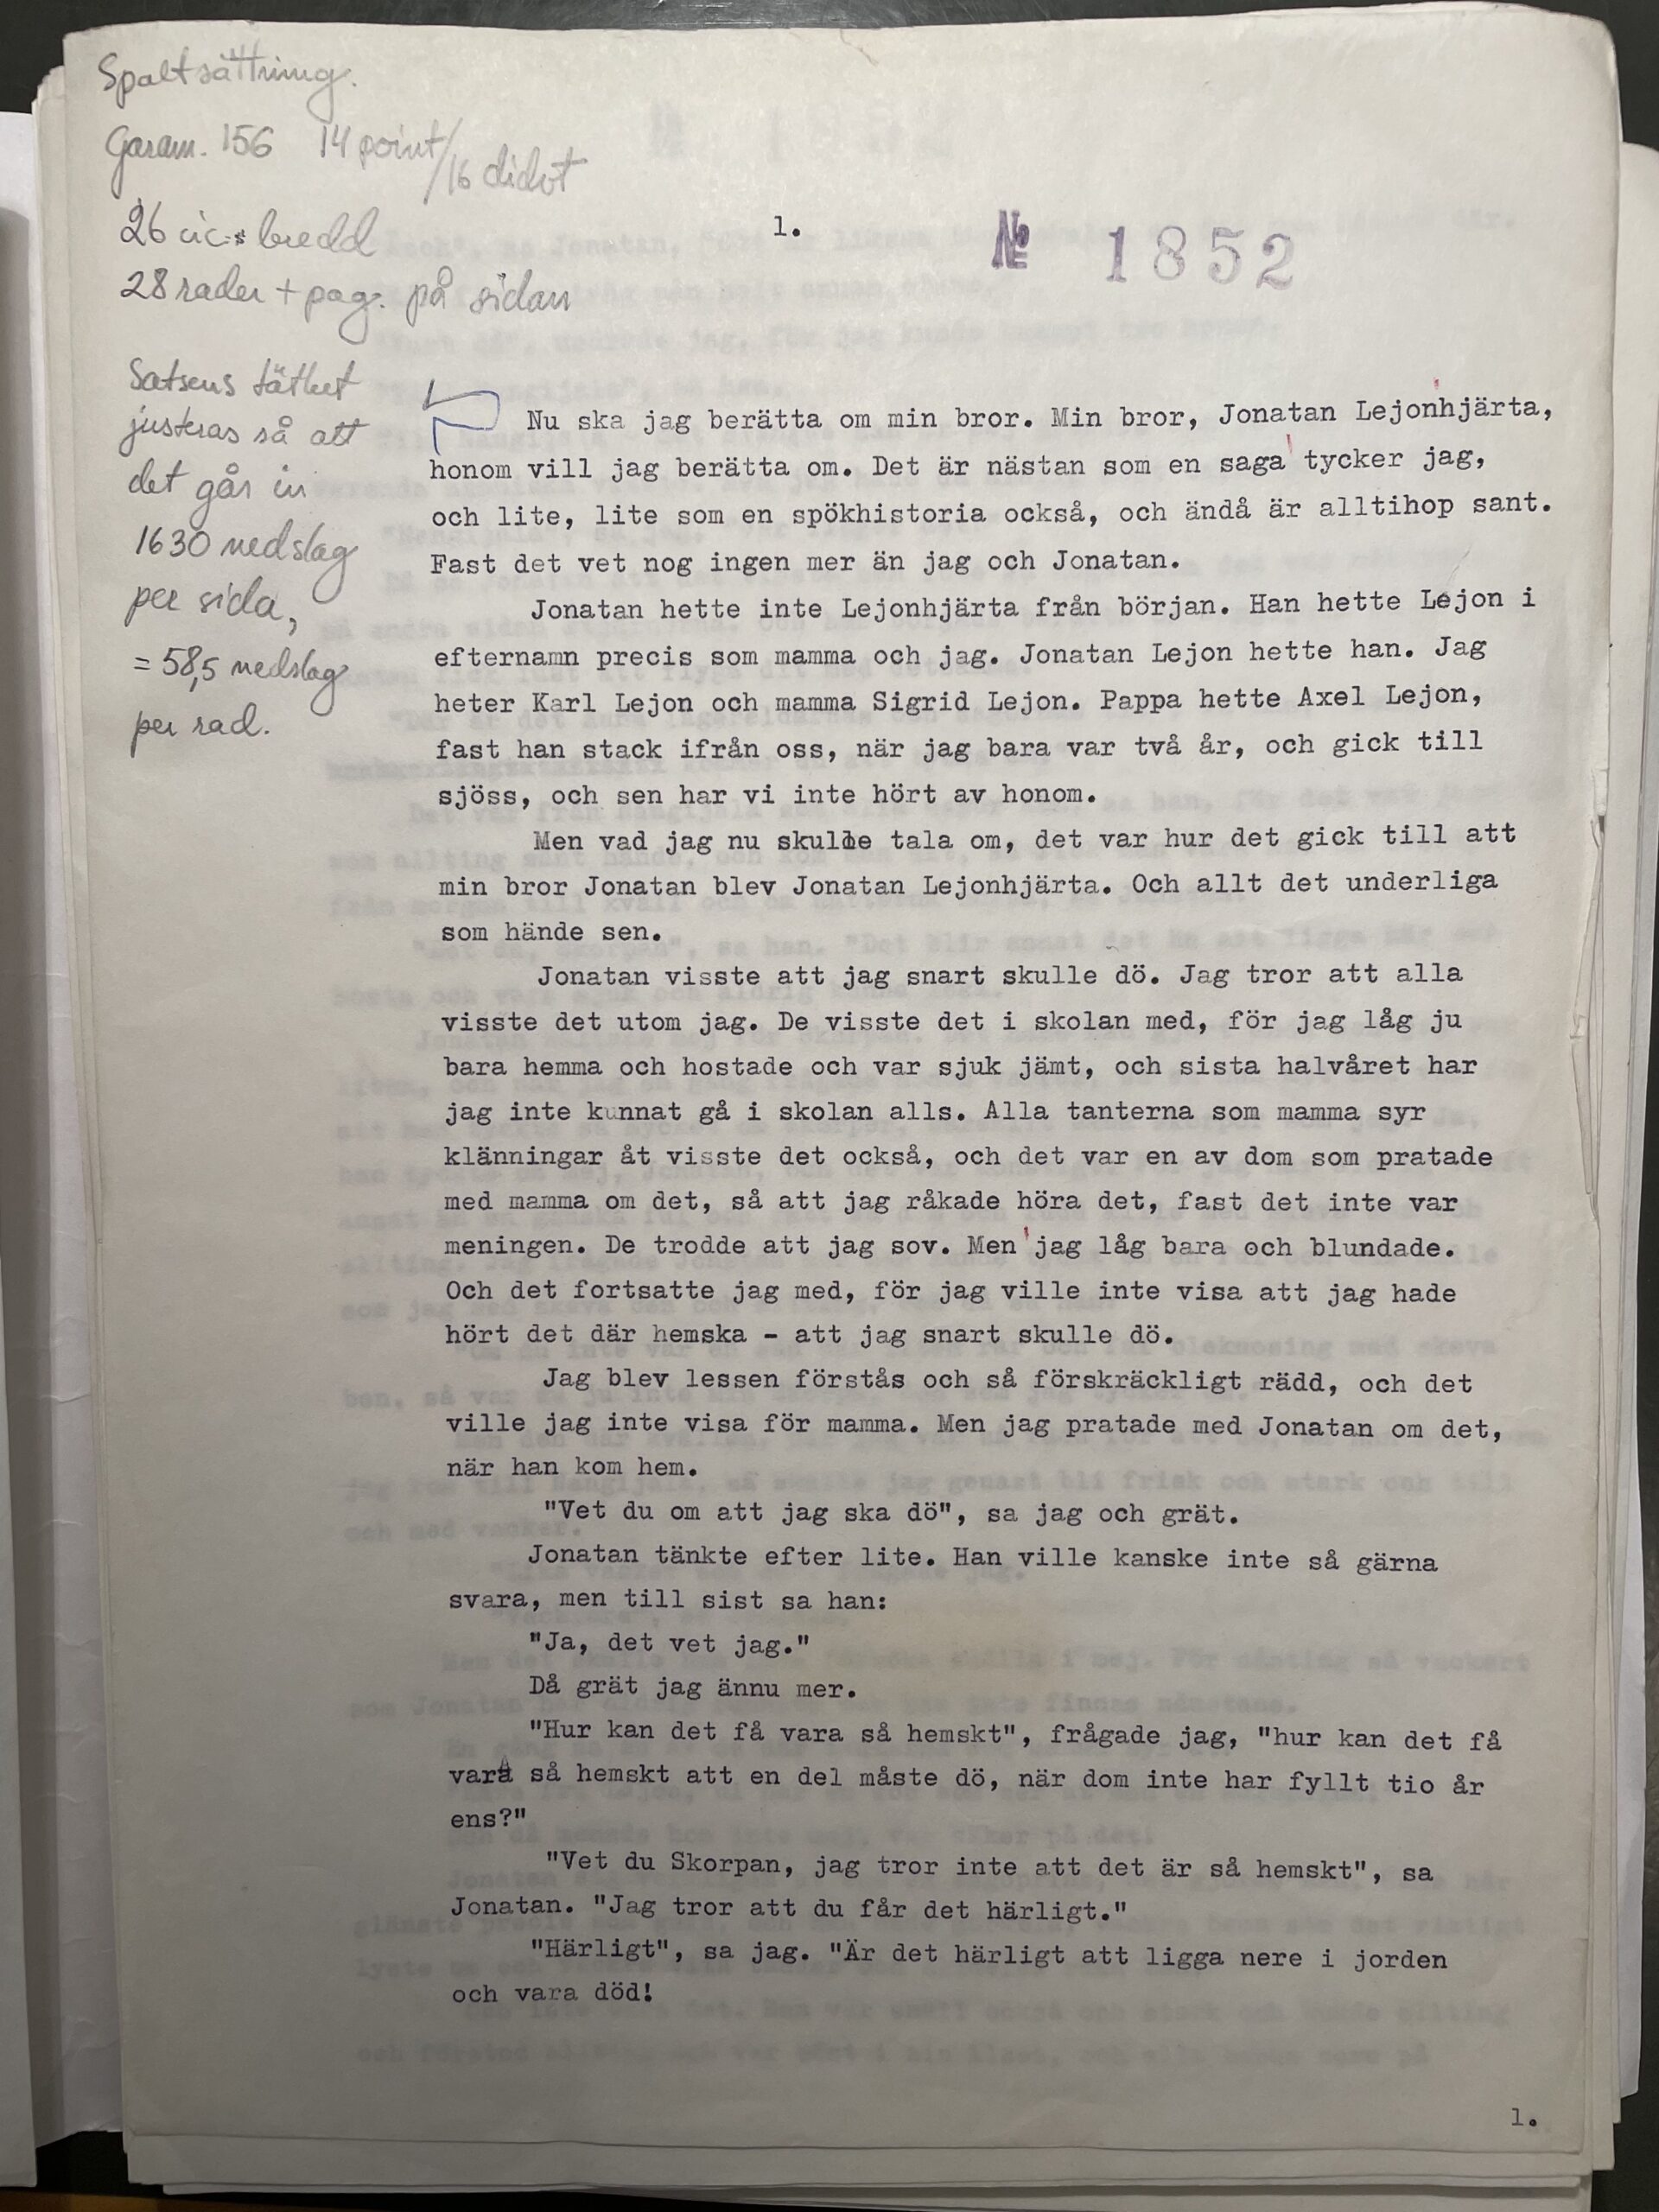 Spaltsättning.
Garam. 156 14 point/16 didot
26 cic:s bredd
28 rader + pag. på sidan
Satsens täthet
justeras så att
det går in
1630 nedslag
per sida,
= 58,5 nedslag
per rad.
1.
№ 1852
Nu ska jag berätta om min bror. Min bror, Jonatan Lejonhjärta,
honom vill jag berätta om. Det är nästan som en saga tycker jag,
och lite, lite som en spökhistoria också, och ändå är alltihop sant.
Fast det vet nog ingen mer än jag och Jonatan.
Jonatan hette inte Lejonhjärta från början. Han hette Lejon i
efternamn precis som mamma och jag. Jonatan Lejon hette han. Jag
heter Karl Lejon och mamma Sigrid Lejon. Pappa hette Axel Lejon,
fast han stack ifrån oss, när jag bara var två år, och gick till
sjöss, och sen har vi inte hört av honom.
Men vad jag nu skulle tala om, det var hur det gick till att
min bror Jonatan blev Jonatan Lejonhjärta. Och allt det underliga
som hände sen.
Jonatan visste att jag snart skulle dö. Jag tror att alla
visste det utom jag. De visste det i skolan med, för jag låg ju
bara hemma och hostade och var sjuk jämt, och sista halvåret har
jag inte kunnat gå i skolan alls. Alla tanterna som mamma syr
klänningar åt visste det också, och det var en av dom som pratade
med mamma om det, så att jag råkade höra det, fast det inte var
meningen. De trodde att jag sov. Men jag låg bara och blundade.
Och det fortsatte jag med, för jag ville inte visa att jag hade
hört det där hemska - att jag snart skulle dö.
Jag blev lessen förstås och så förskräckligt rädd, och det
ville jag inte visa för mamma. Men jag pratade med Jonatan om det,
när han kom hem.
"Vet du om att jag ska dö", sa jag och grät.
Jonatan tänkte efter lite. Han ville kanske inte så gärna
svara, men till sist sa han:
"Ja, det vet jag."
Då grät jag ännu mer.
"Hur kan det få vara så hemskt", frågade jag, "hur kan det få
vara så hemskt att en del måste dö, när dom inte har fyllt tio år
ens?"
"Vet du Skorpan, jag tror inte att det är så hemskt", sa
Jonatan. "Jag tror att du får det härligt."
"Härligt", sa jag. "Är det härligt att ligga nere i jorden
och vara död!
1.